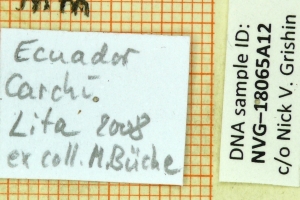 mm
Ecuador
Carchi.
Lita 2008
ex coll. M. Büche
DNA sample ID:
NVG–18065A12
c/o Nick V. Grishin